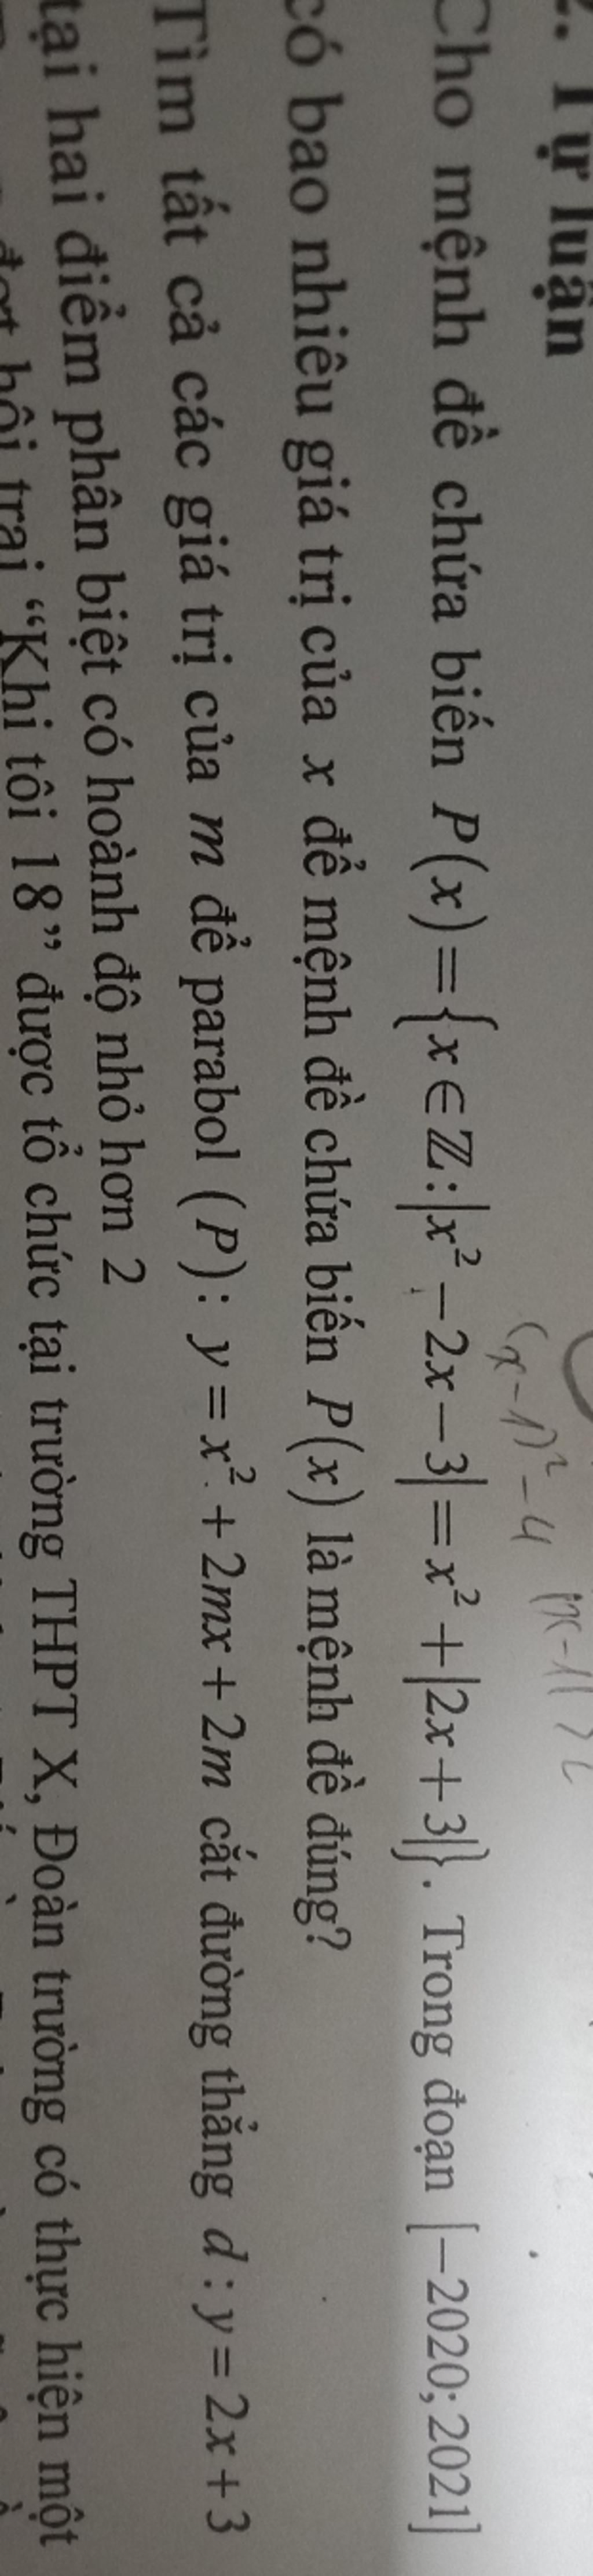 2. Tự luận
(x-1)² - 4
Cho mệnh đề chứa biến P(x) = {x ∈ ℤ : |x² − 2x − 3| = x² + |2x + 3|}. Trong đoạn [−2020; 2021]
có bao nhiêu giá trị của x để mệnh đề chứa biến P(x) là mệnh đề đúng?
Tìm tất cả các giá trị của m để parabol (P): y = x² + 2mx + 2m cắt đường thẳng d : y = 2x + 3
tại hai điểm phân biệt có hoành độ nhỏ hơn 2
đợt hội trại “Khi tôi 18” được tổ chức tại trường THPT X, Đoàn trường có thực hiện một